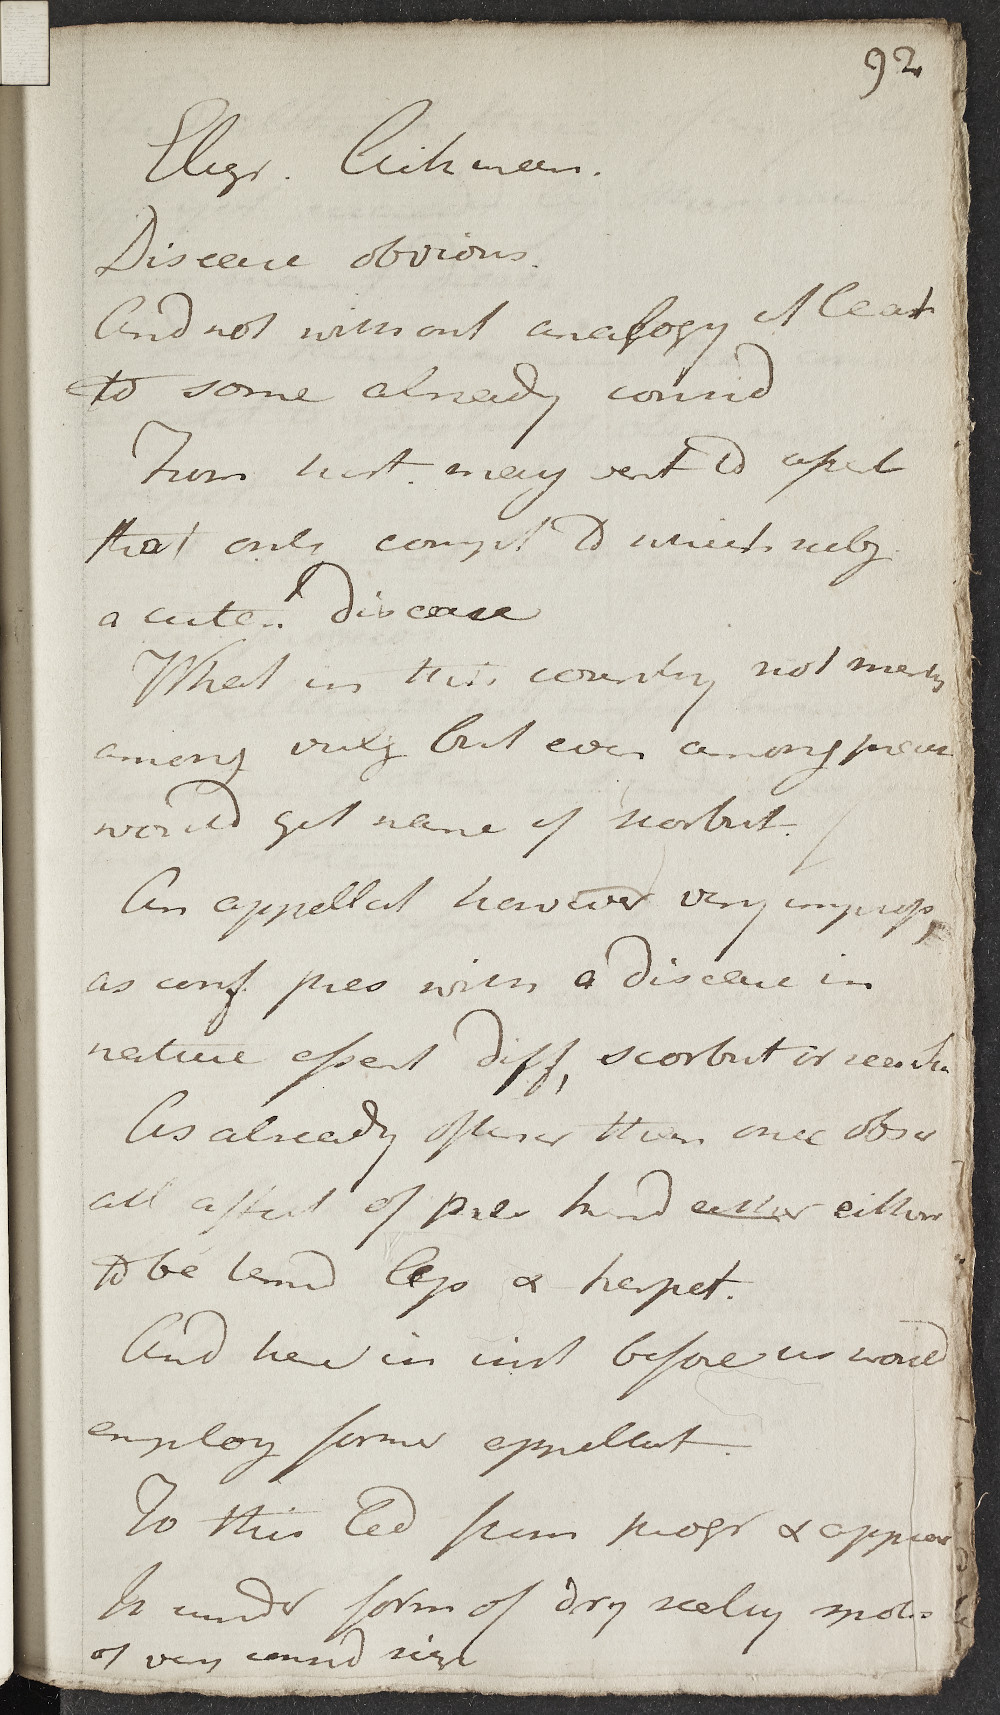 92
Elizr. Aikman.
Disease obvious.
And not without analogy at least
to some already consid
From hist. may vent to
that only compl to which subj
disease
What in this country not merely
among vulg but even among
would get name of scorbut.
An appellat however very improp,
as conf pres with a disease in
nature essent diff, scorbut or
As already oftener than once obser
all affect of pres kind either either
to be lep & herpet.
And here in inst before us would
employ former appellat.
To this led from progr & appear
Is under form of dry scaly spots
of very consid size